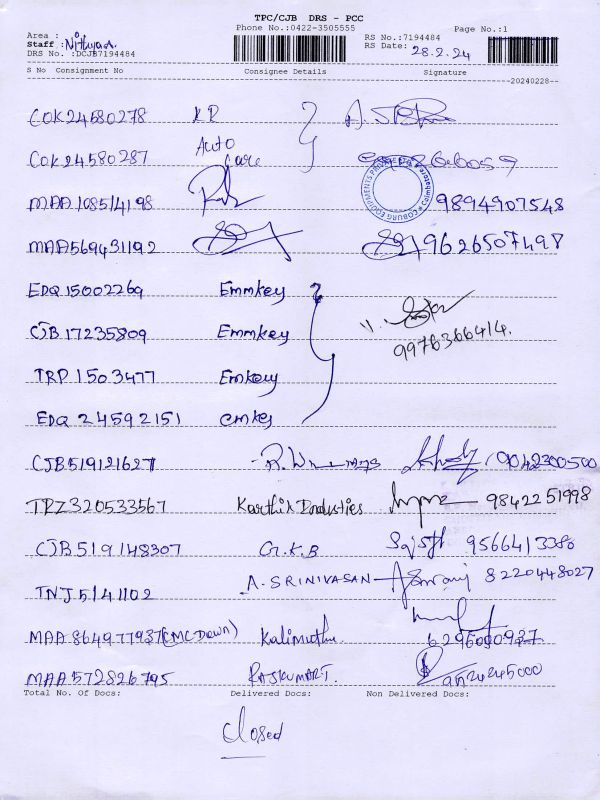 TPC/CJB DRS - PCC
Phone No.:0422-3505555
Page No.:1
Area :
Staff : Nithyan.
RS No.:7194484
RS Date: 28.2.24
DRS No. :DCJB7194484
S No Consignment No Consignee Details Signature
20240228
COK24580278 KR
COK24580287 Auto Care
MAA108514198 9894907548
COBURG EQUIPMENTS PRIVATE Coimbatore
MAA569431192 9626507498
EDQ15002269 Emmkey
CJB17235809 Emmkey
9976366414.
TRP1503477 Emkey
EDQ 24592151 emkey
CJB519121627 9042300500
TRZ320533567 Karthik Industies 9842251998
CJB519148307 G.K.B 9566413386
TNJ5141102 A. SRINIVASAN 8220448027
MAA864977937(CMC Down) Kalimuthu. 6295600937
MAA572826795 RAJKUMAR T.
Total No. Of Docs: Delivered Docs: Non Delivered Docs:
Closed